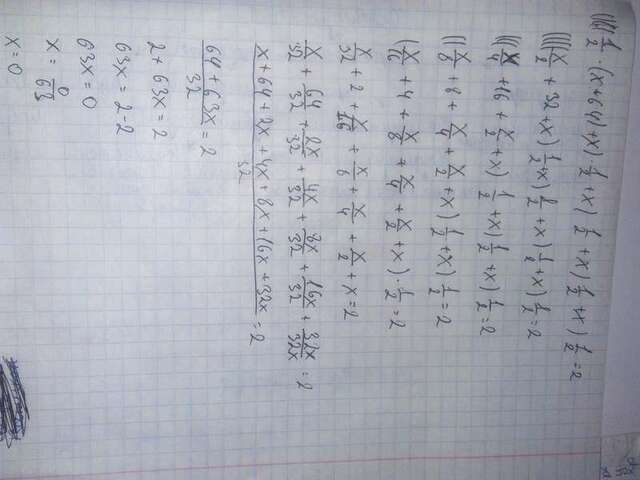 (((((1/2 · (x+64)+x) 1/2 +x) 1/2 +x) 1/2 +x) 1/2 = 2
((((x/2 + 32 + x) 1/2 +x) 1/2 +x) 1/2 +x) 1/2 = 2
(((x/4 + 16 + x/2 + x) 1/2 +x) 1/2 +x) 1/2 = 2
((x/8 + 8 + x/4 + x/2 +x) 1/2 +x) 1/2 = 2
(x/16 + 4 + x/8 + x/4 + x/2 + x) · 1/2 = 2
x/32 + 2 + x/16 + x/8 + x/4 + x/2 + x = 2
x/32 + 64/32 + 2x/32 + 4x/32 + 8x/32 + 16x/32 + 32x/32 = 2
x + 64 + 2x + 4x + 8x + 16x + 32x / 32 = 2
64 + 63x / 32 = 2
2 + 63x = 2
63x = 2-2
63x = 0
x = 0/63
x = 0